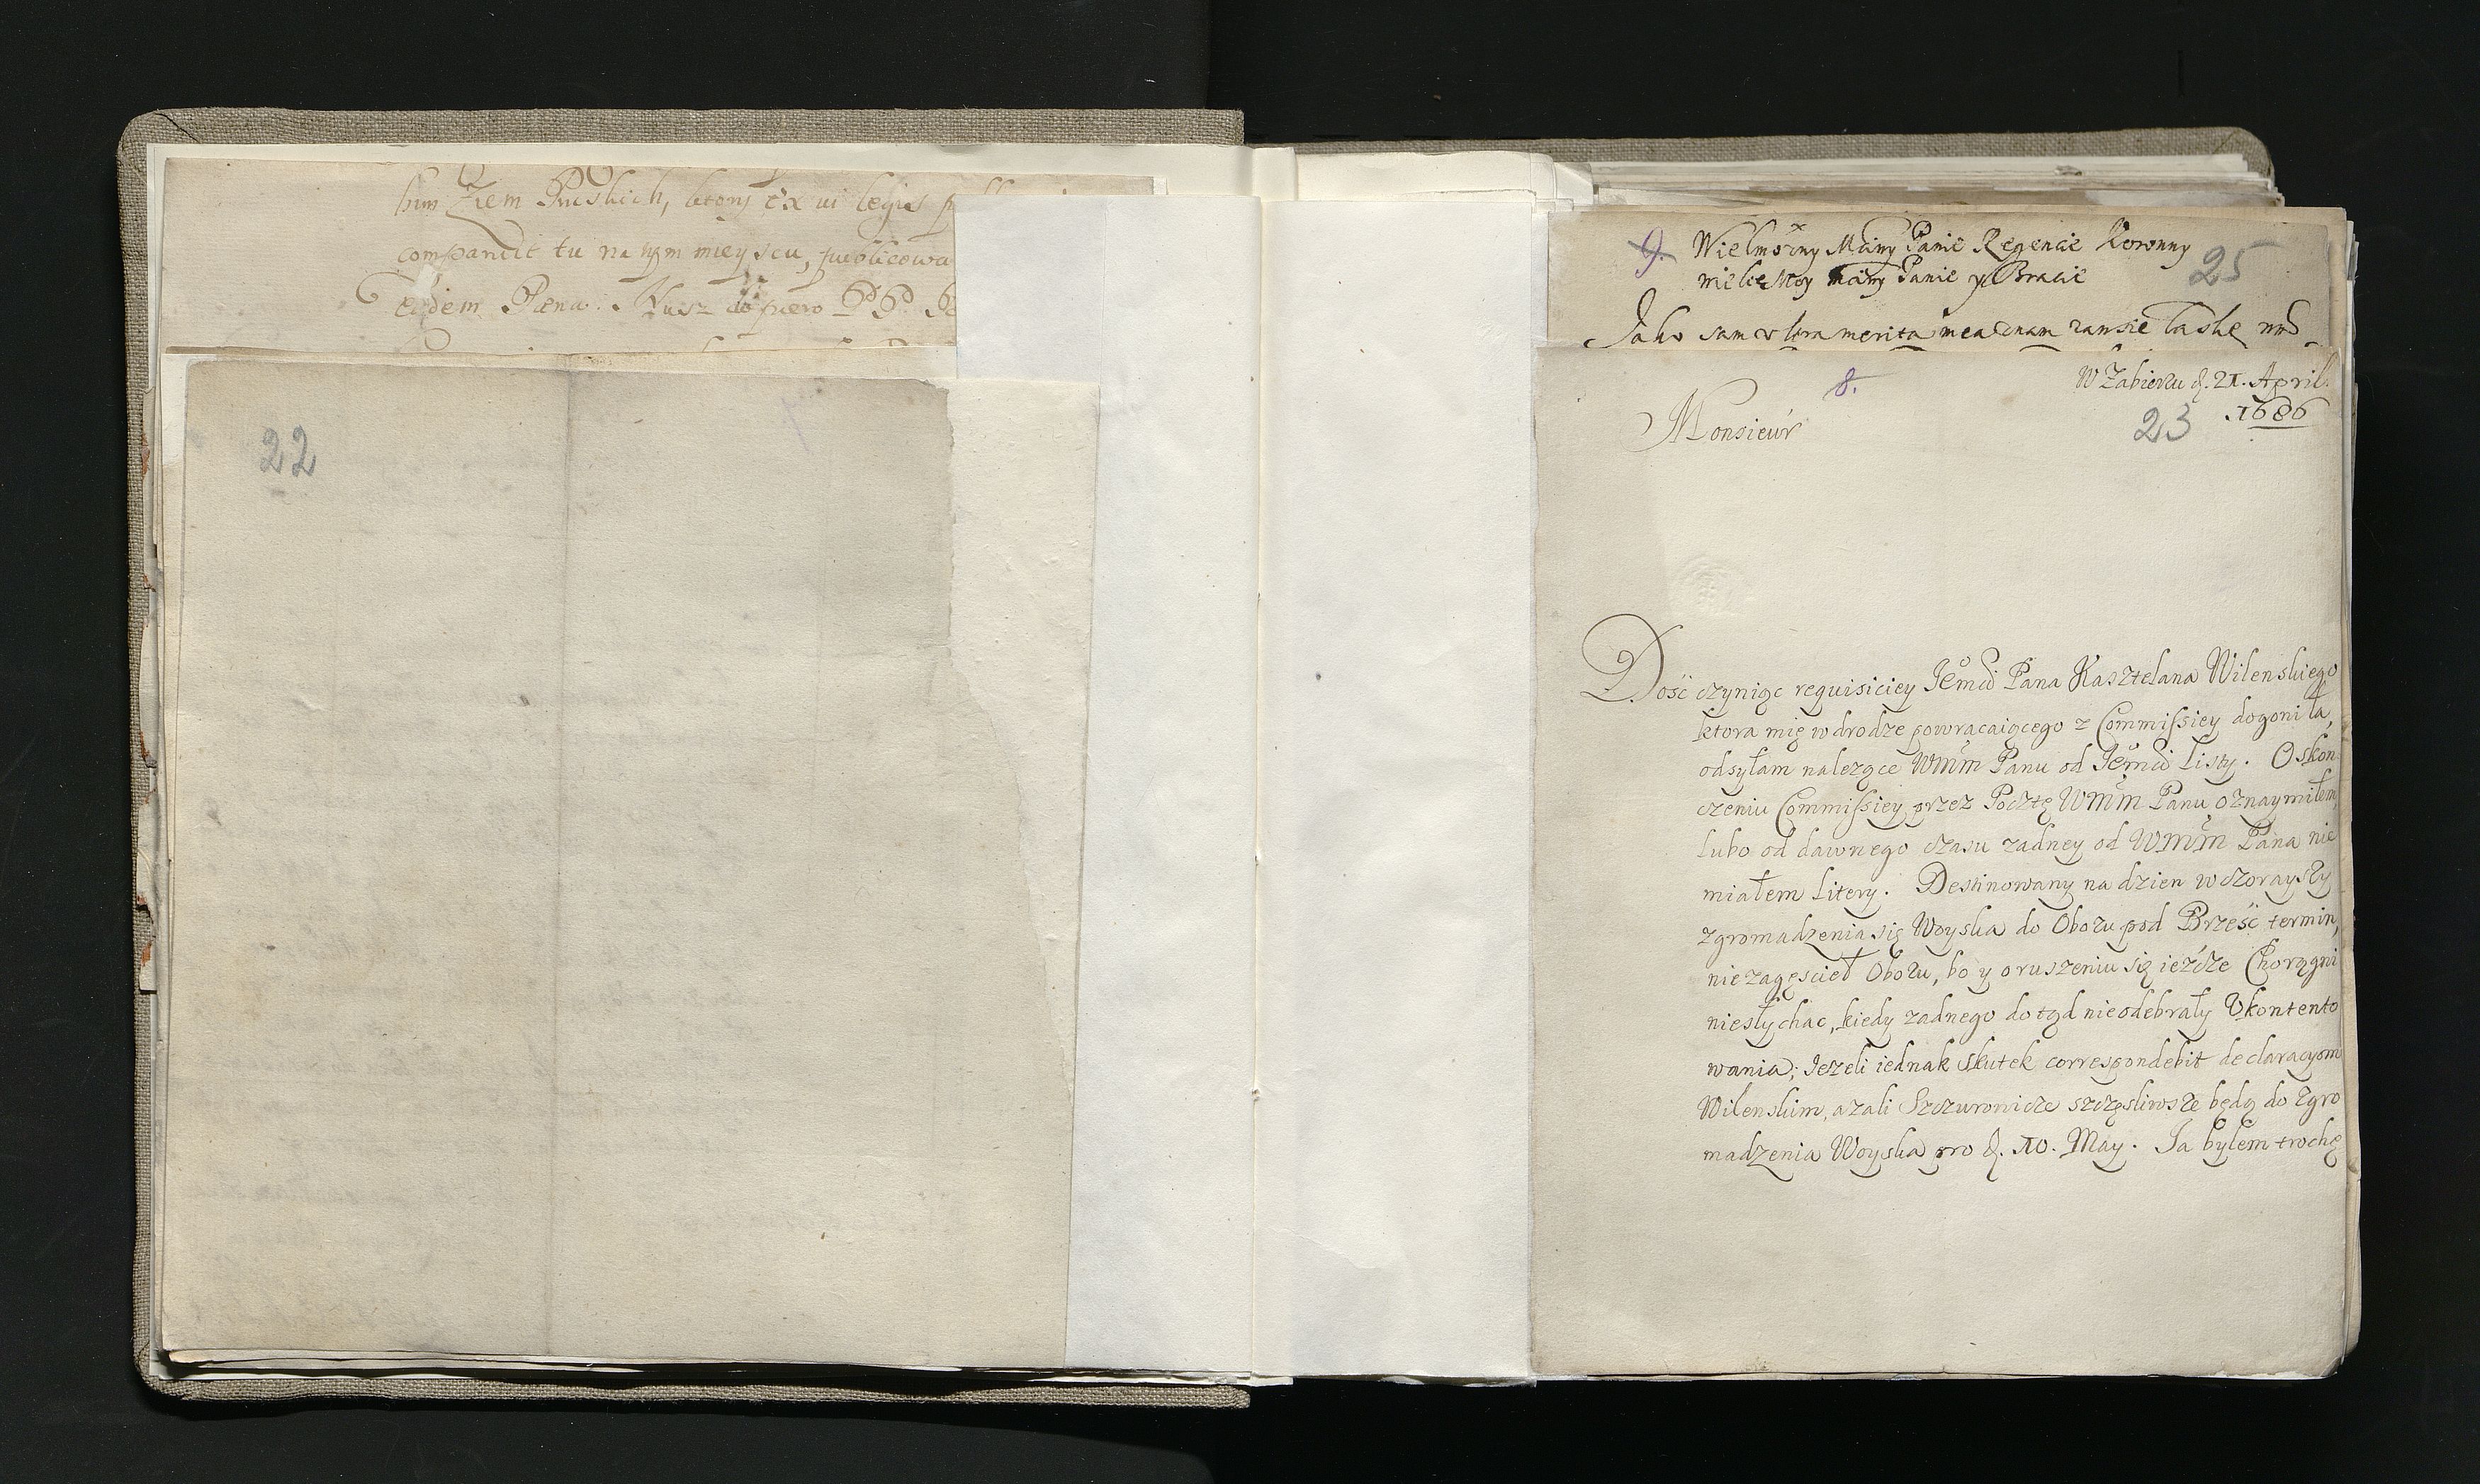 Ziem Pruskich, ktory ex vi legis
comparuit tu na tym mieyscu, publicowa
eadem Pæna. Nusz dopiero PP.
22
9. Wielmozny Mciwy Panie Regencie Koronny 25
mnie Moy Mciwy Panie y Bracie
Jako sam ultra merita mea znam zawsze Łaskę
8. W Zabierzu d. 21. April.
23 1686
Monsieur
Dość czyniąc requisiciey Jemci Pana Kasztelana Wilenskiego
ktora mię w drodze powracaiącego z Commissiey dogoniła,
odsyłam nalezące WMM Panu od Jemci Listy. O skon
czeniu Commissiey przez Pocztę WMM Panu oznaymiłem,
lubo od dawnego czasu zadney od WMM Pana nie
miałem Litery. Destinowany na dzien wczorayszy
zgromadzenia się Woyska do Obozu pod Brześć termin,
nie zagęścieł Obozu, bo y o ruszeniu się ieźdze Chorągni
niesłychac, kiedy zadnego dotąd nieodebrały Ukontento
wania; Jezeli iednak skutek correspondebit declaracyom
Wilenskim, azali Szczuronicze szczęsliwsze będą do zgro
madzenia Woyska pro d. 10. May. Ja byłem trochę